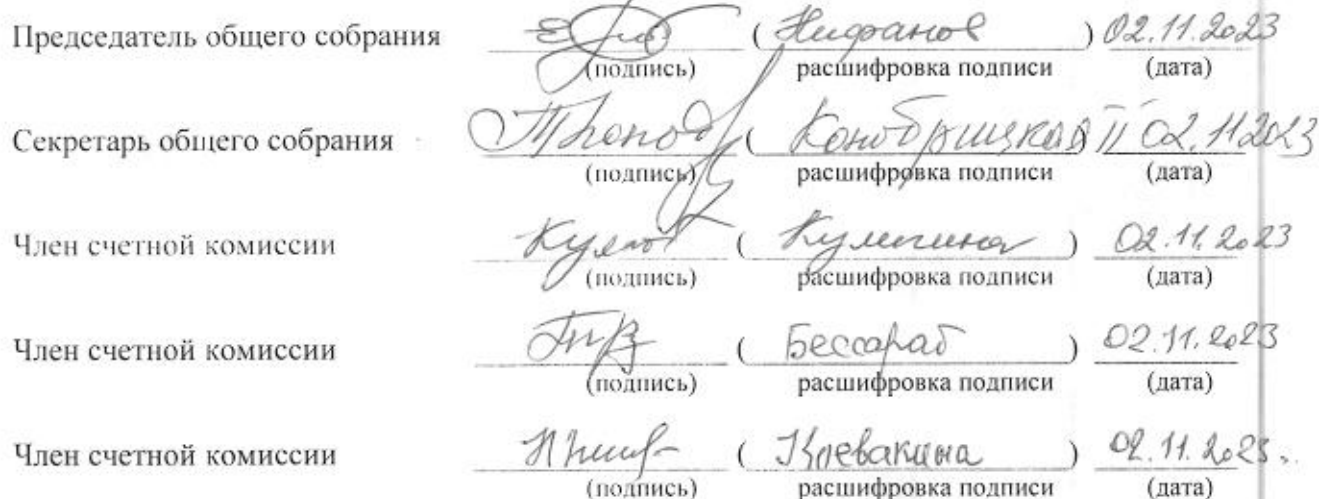 Председатель общего собрания ( Нифанов ) 02.11.2023
(подпись) расшифровка подписи (дата)
Секретарь общего собрания ( 02.11.2023
(подпись) расшифровка подписи (дата)
Член счетной комиссии ( Кулигина ) 02.11.2023
(подпись) расшифровка подписи (дата)
Член счетной комиссии ( Бессараб ) 02.11.2023
(подпись) расшифровка подписи (дата)
Член счетной комиссии ( Клевакина ) 02.11.2023.
(подпись) расшифровка подписи (дата)